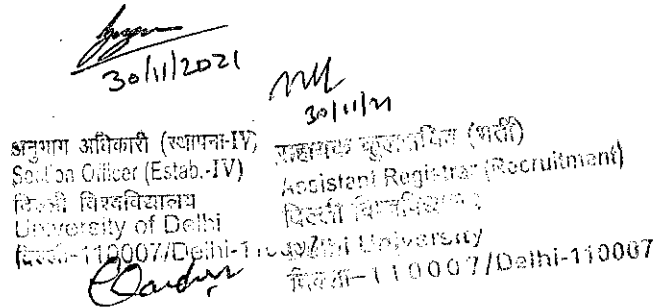 30/11/2021
30/11/21
अनुभाग अधिकारी (स्थापना-IV)
Section Officer (Estab.-IV)
दिल्ली विश्वविद्यालय
University of Delhi
दिल्ली-110007/Delhi-110007
सहायक कुलसचिव (भर्ती)
Assistant Registrar (Recruitment)
दिल्ली विश्वविद्यालय
Delhi University
दिल्ली-110007/Delhi-110007